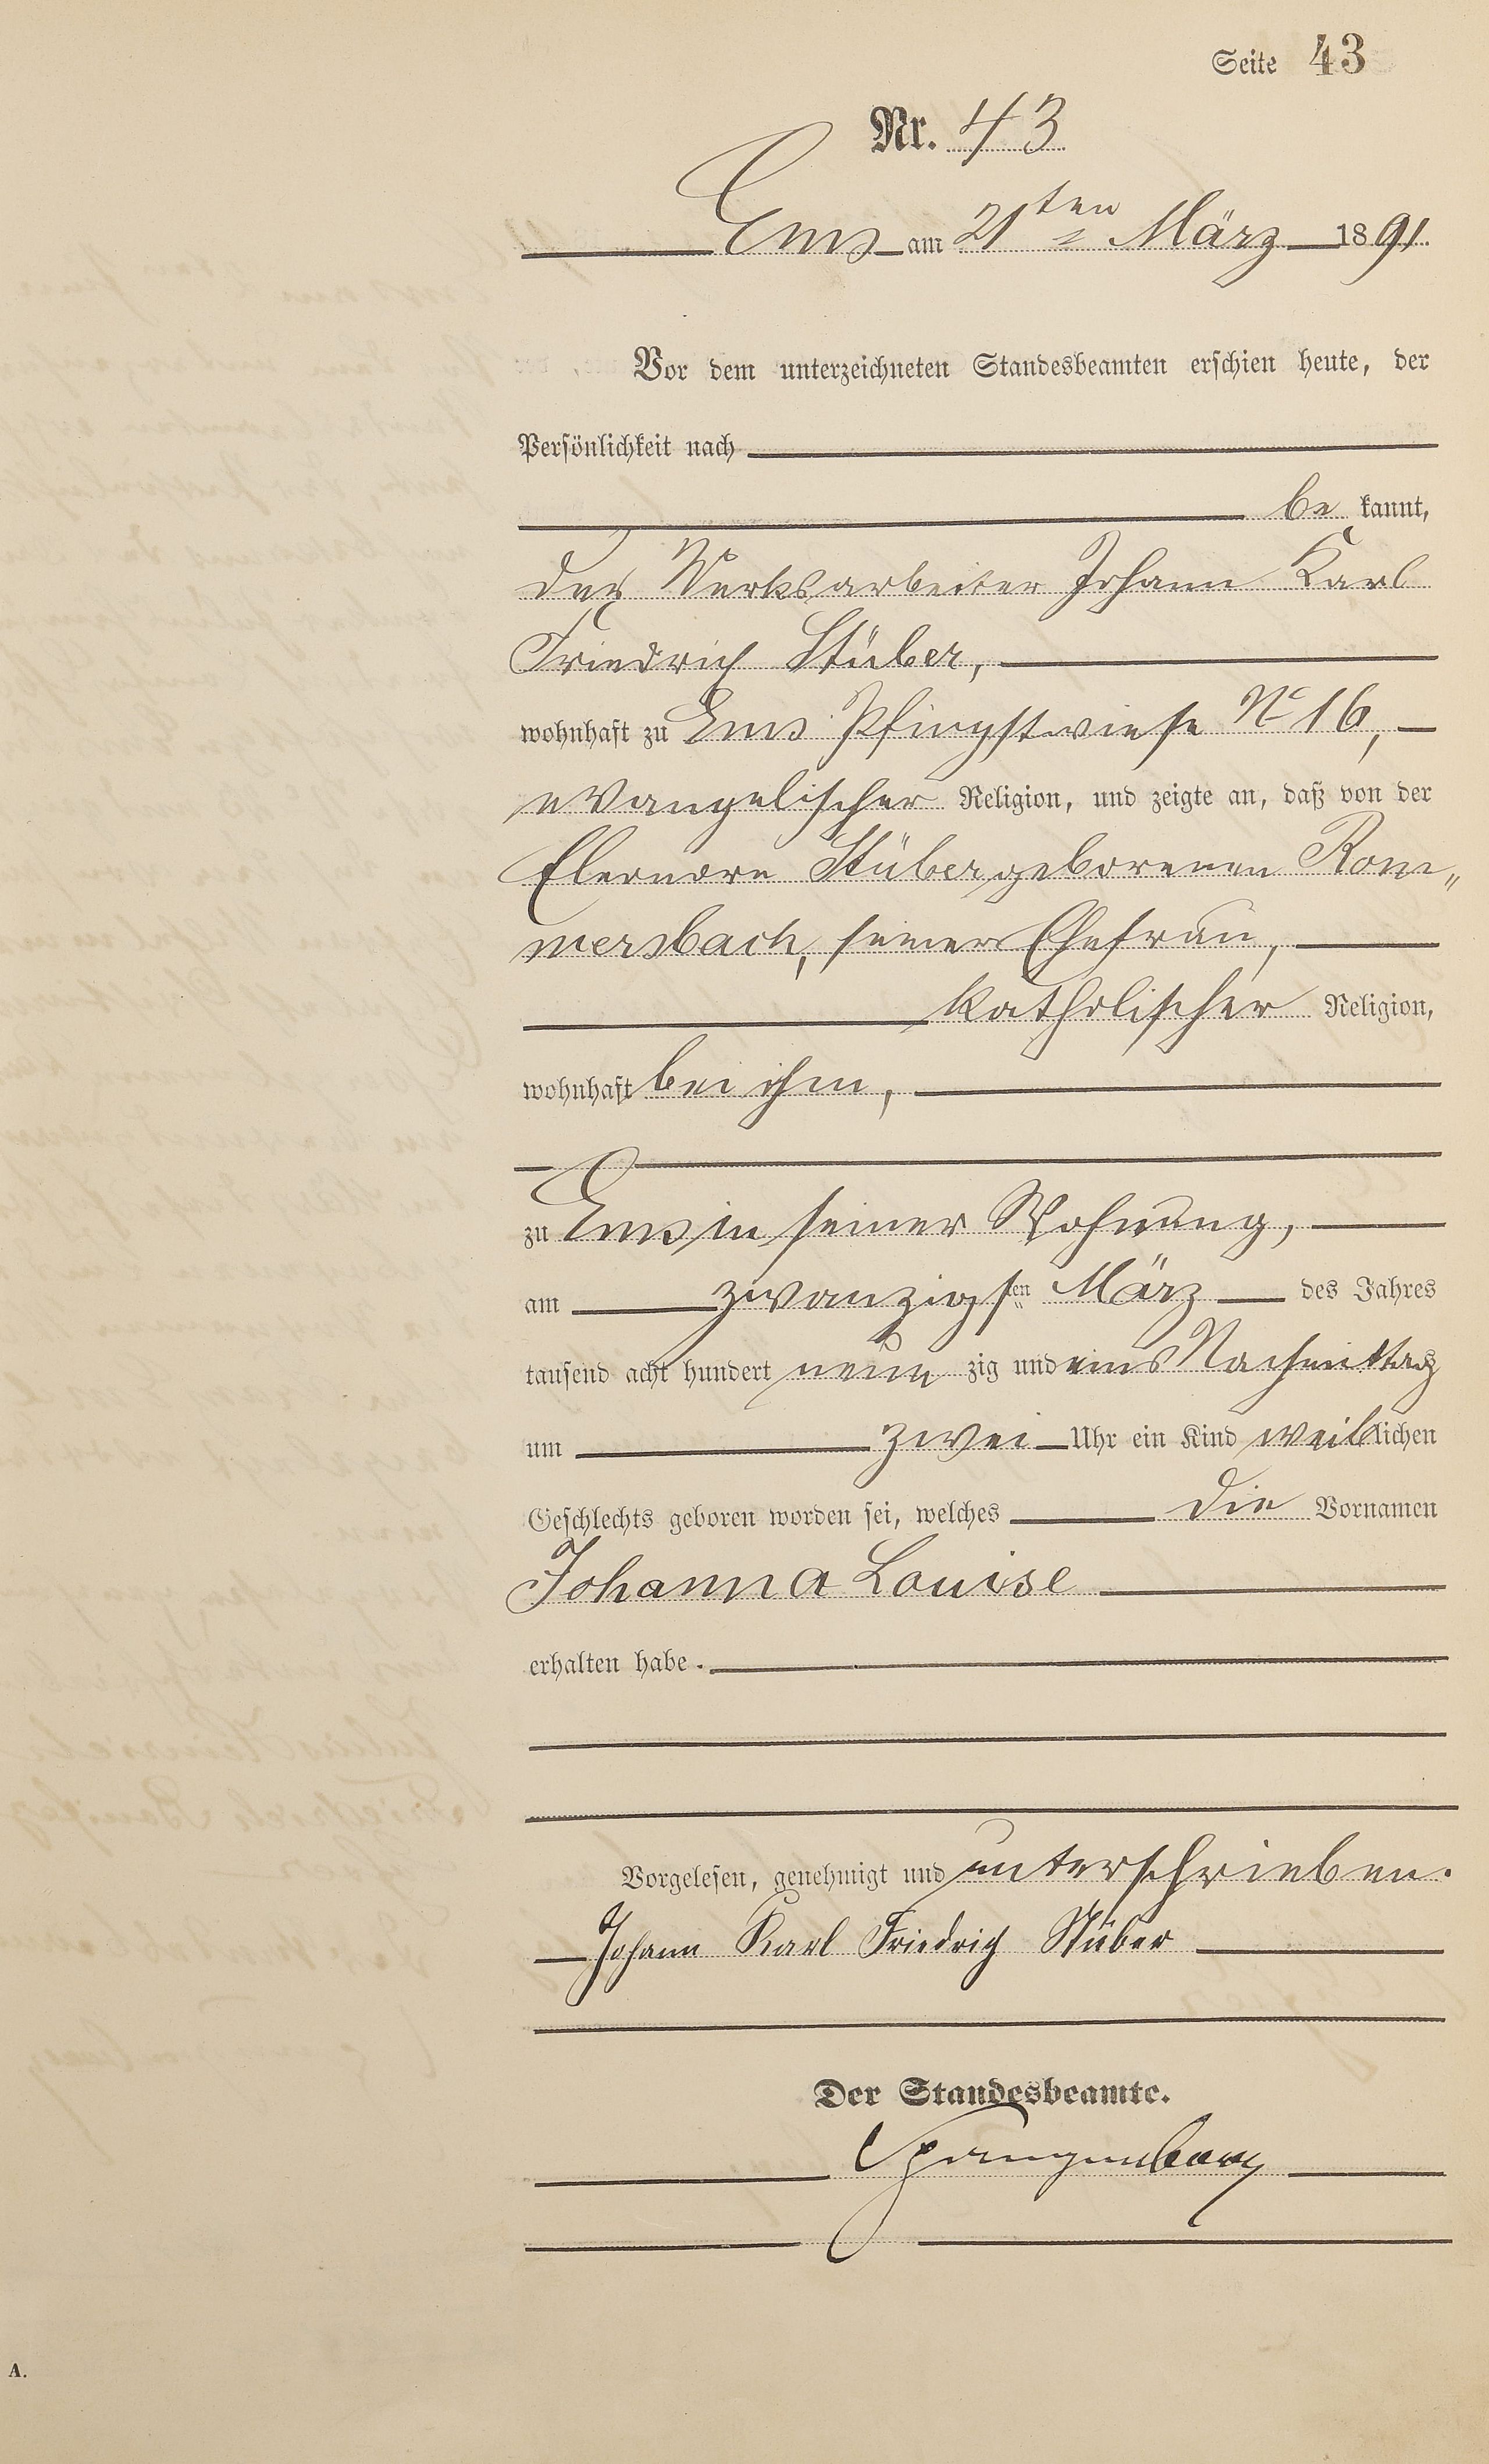 Seite 43
Nr. 43
Ems am 21ten März 1891.
Vor dem unterzeichneten Standesbeamten erschien heute, der
Persönlichkeit nach
be kannt,
der Werksarbeiter Johann Karl
Friedrich Stüber,
wohnhaft zu Ems Pfingstwiese No 16,
evangelischer Religion, und zeigte an, daß von der
Eleonore Stüber geborenen Rom„
mersbach, seiner Ehefrau,
katholischer Religion,
wohnhaft bei ihm,
zu Ems in seiner Wohnung,
am zwanzigsten März des Jahres
tausend acht hundert neun zig und eins Nachmittags
um zwei Uhr ein Kind weiblichen
Geschlechts geboren worden sei, welches die Vornamen
Johanna Louise
erhalten habe.
Vorgelesen, genehmigt und unterschrieben.
Johann Karl Friedrich Stüber
Der Standesbeamte.
Spangenberg
A.